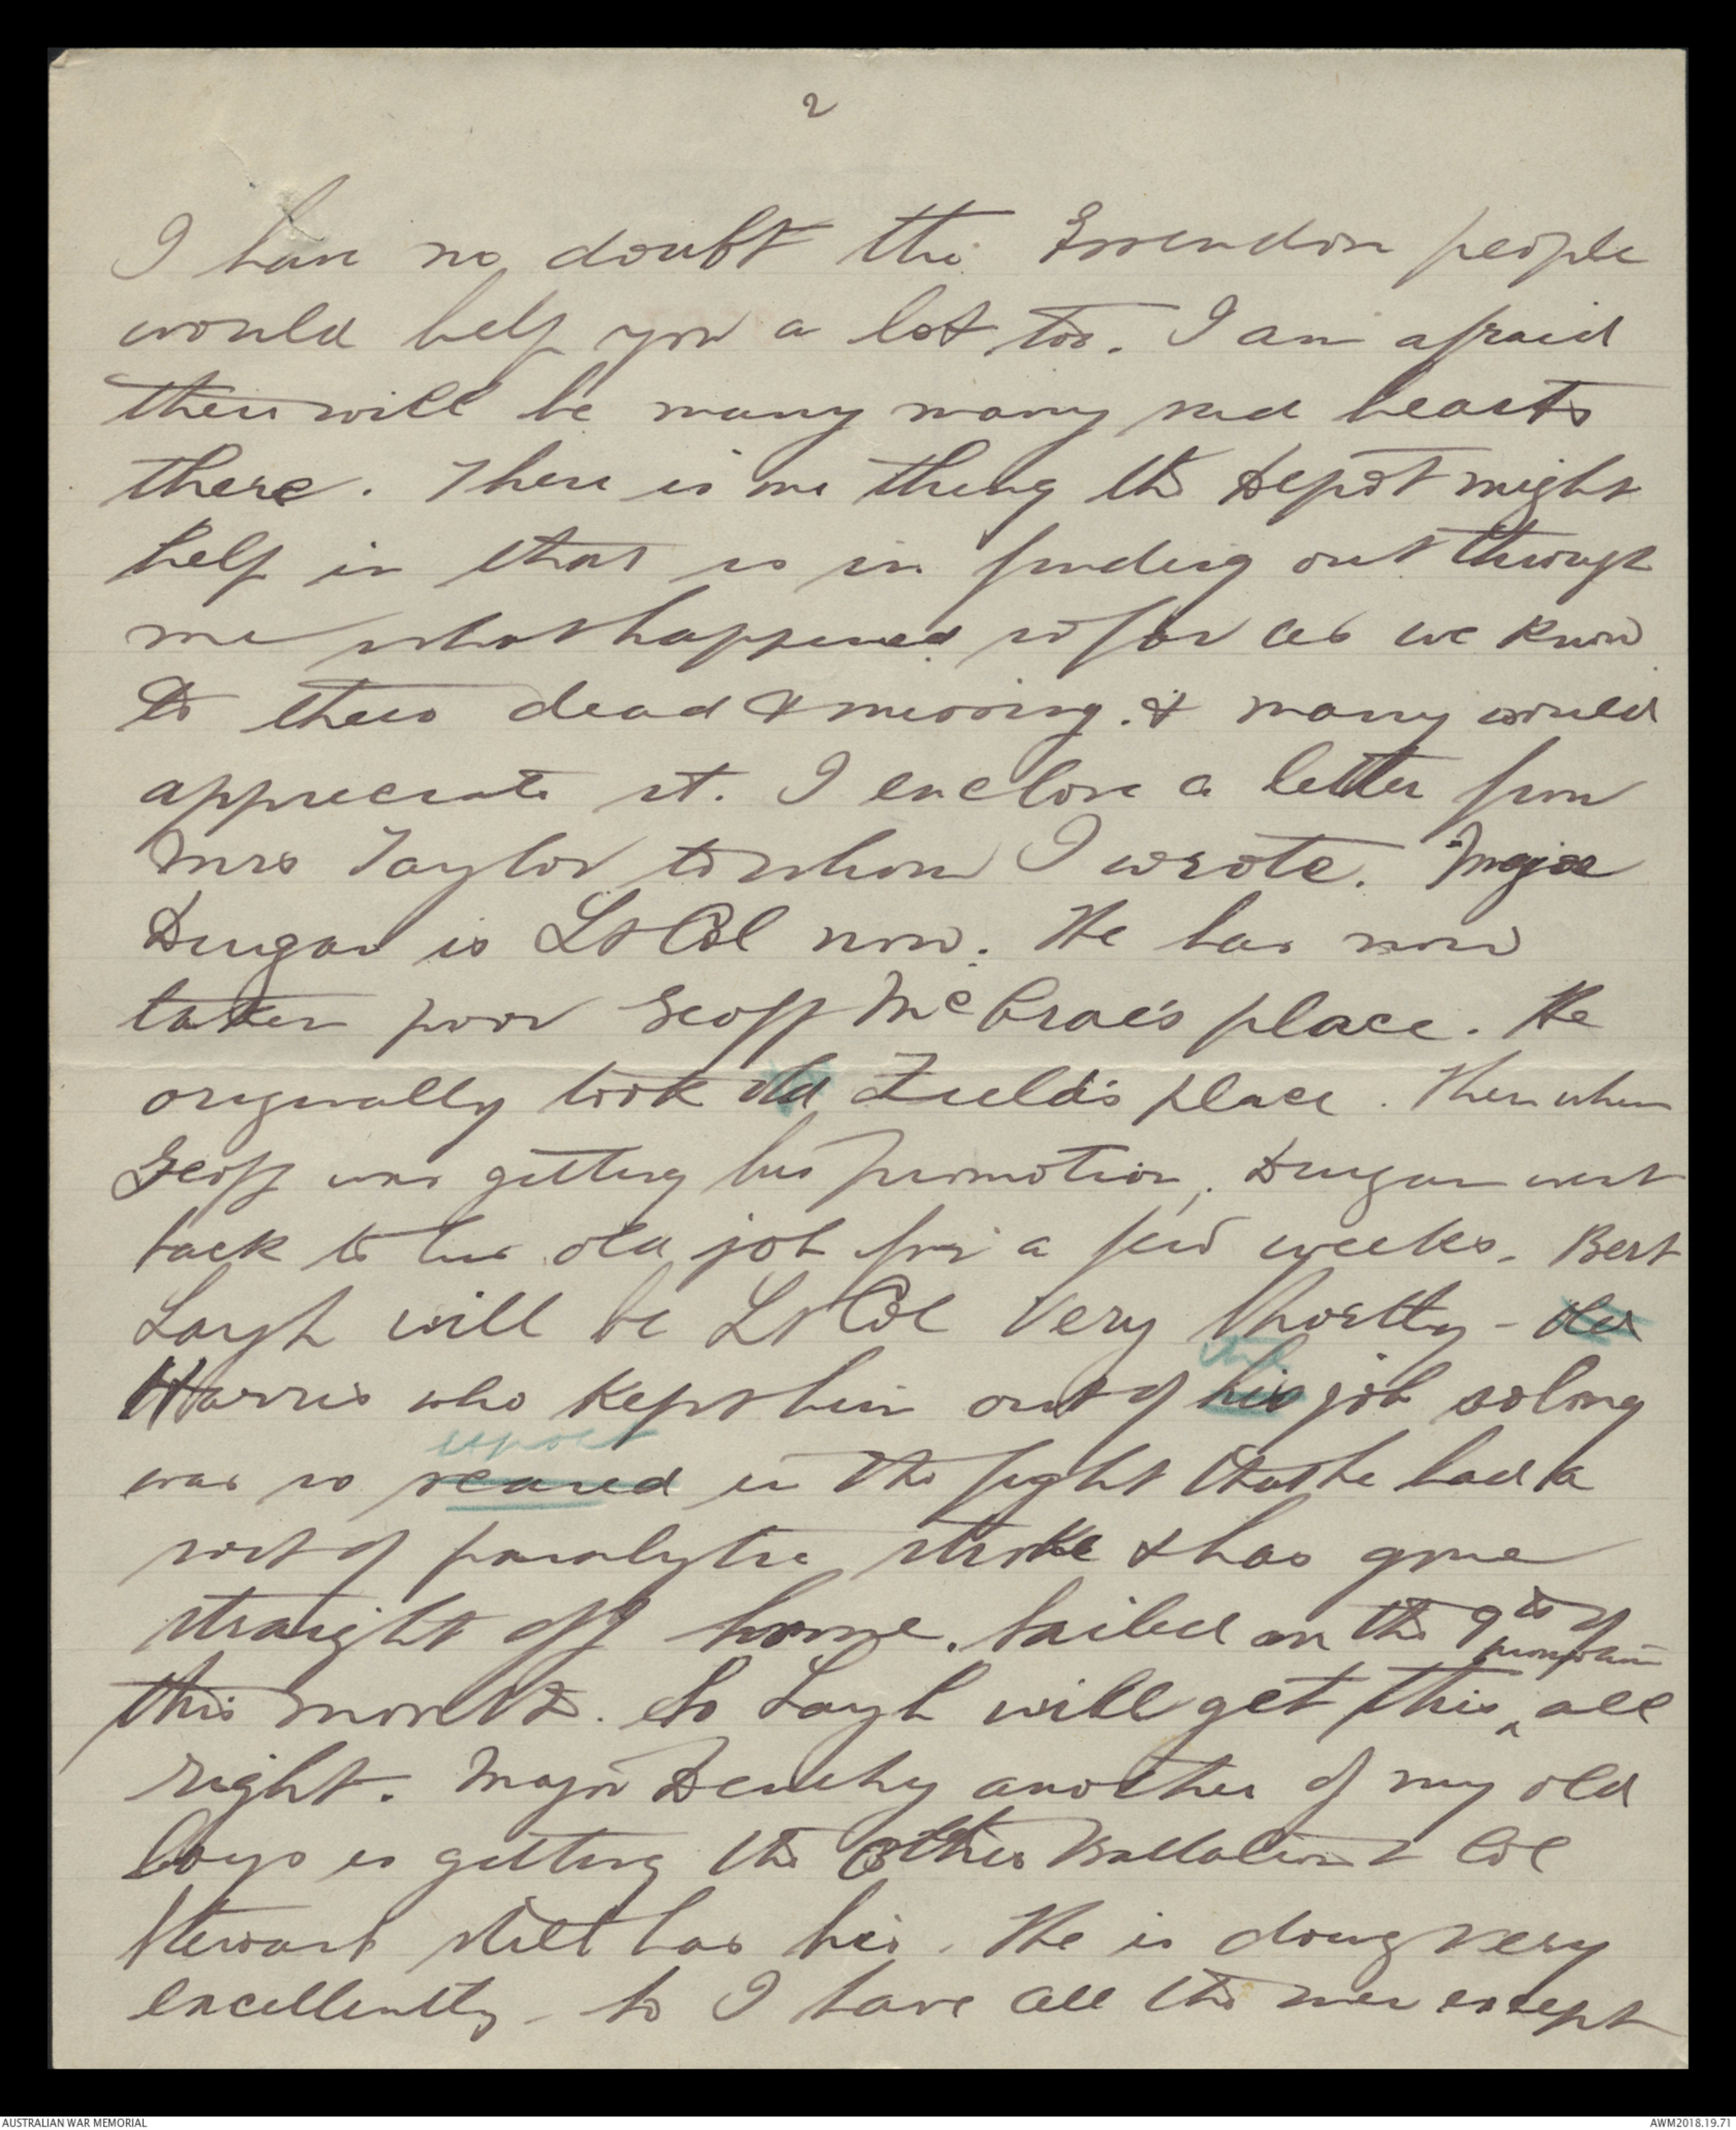 2
I have no doubt the Essendon people
would help you a lot too. I am afraid
there will be many many sad hearts
there. There is one thing the Depot might
help in that is in finding out through
me what happened so far as we know
to their dead & missing. & many would
appreciate it. I enclose a letter from
Mrs Taylor to whom I wrote. Major
Duigan is Lt Col now. He has now
taken poor Geoff McCrae's place. He
originally took old Field's place. Then when
Geoff was getting his promotion, Duigan went
back to his old job for a few weeks. Bert
Layh will be Lt Col very shortly - old
the
Harris who kept him out of his job so long
upset
was so scared in the fight that he had a
sort of paralytic stroke & has gone
straight off home. Sailed on the 9th of
promotion
this month. So Layh will get this ^ all
right. Major Denehy another of my old
boys is getting the other Battalion & Col
Stewart still has his. He is doing very
excellently - So I have all the men except
AUSTRALIAN WAR MEMORIAL
AWM2018.19.71